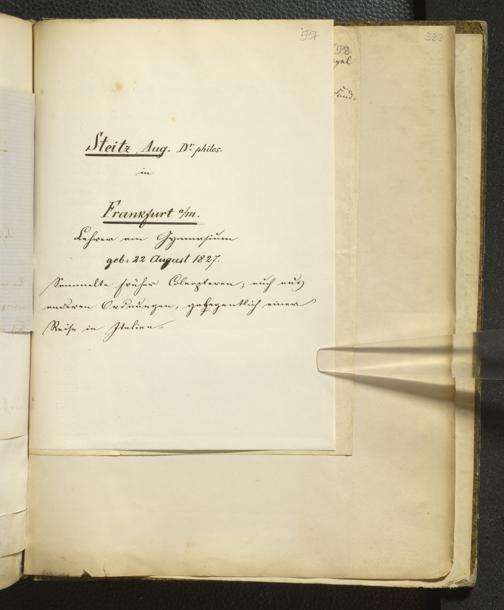 557
558
Steitz Aug. Dr. philos.
in
Frankfurt a/m.
Lehrer am Gymnasium
geb: 22 August 1827.
Sammelte früher Coleopteren, auch aus
anderen Ordnungen, gelegentlich einer
Reise in Italien.